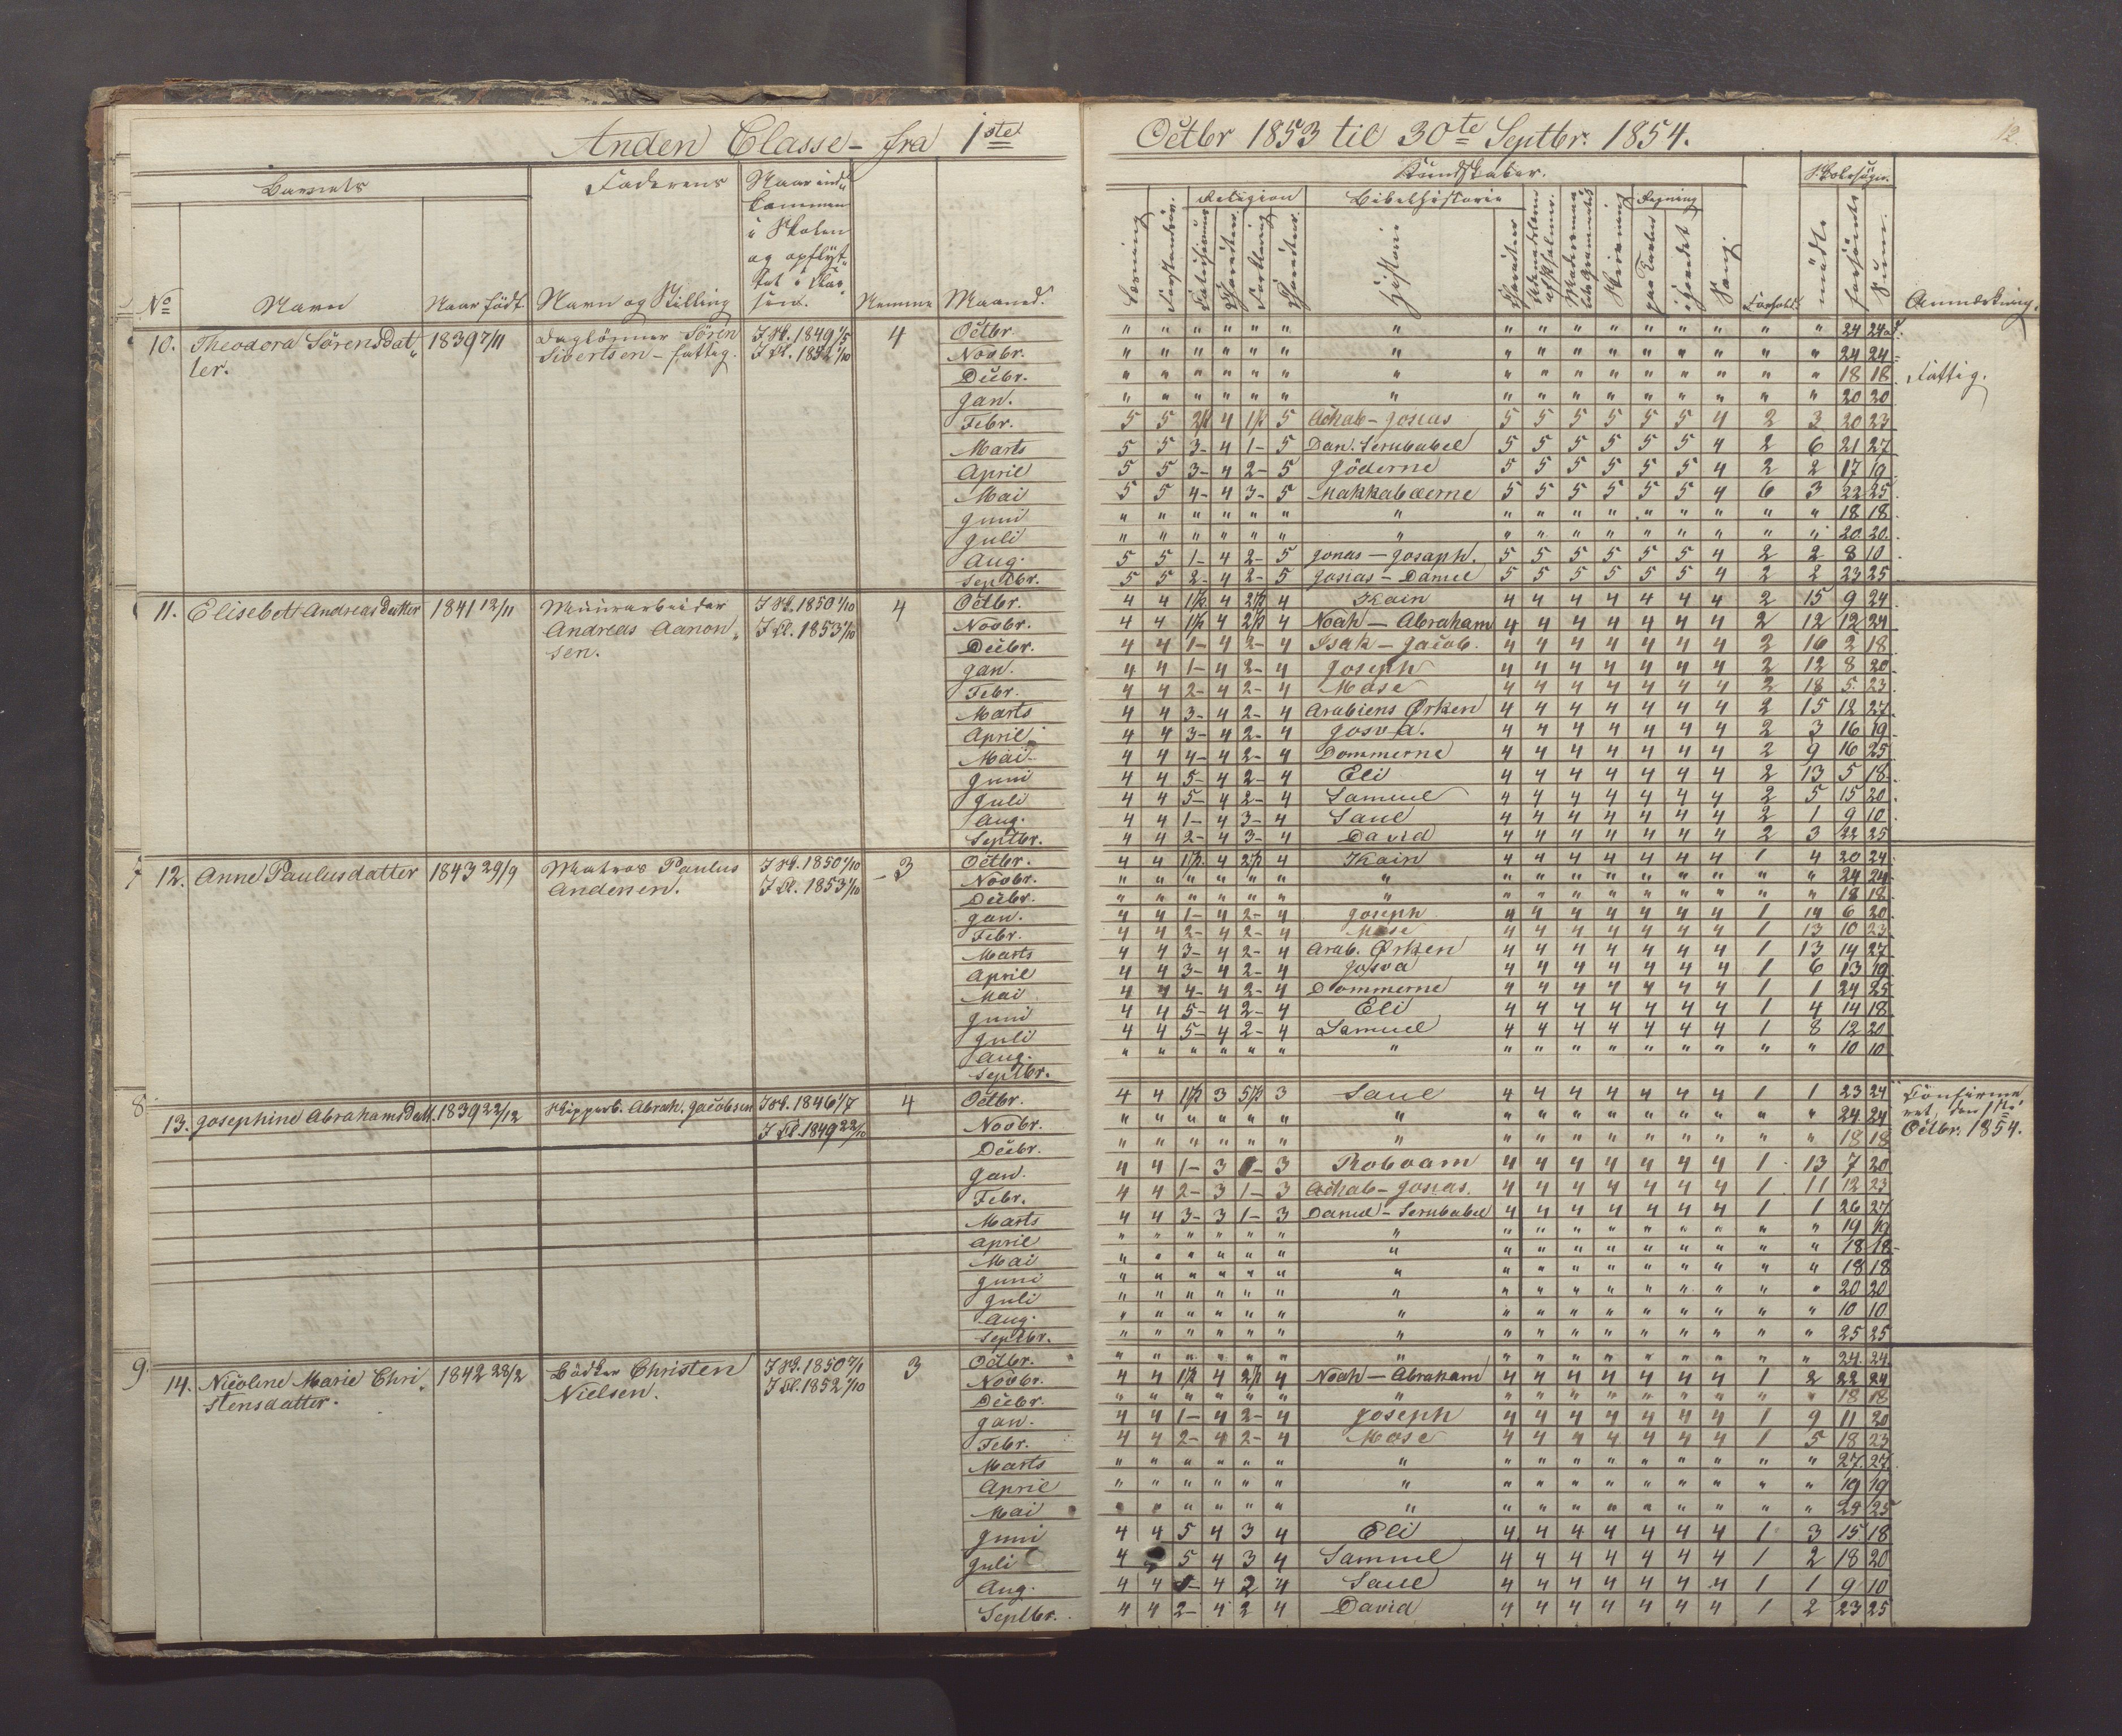 Anden Classe - fra 1ste
Octbr 1853 til 30te Septbr. 1854.
12.
Barnets
Faderens
Naar ind-
kommen
i Skolen
og opflyt-
tet i Clas-
sen.
No
Navn
Naar født.
Navn og Stilling
Nemme
Maaned.
Kundskaber.
Skolesøgn.
Religion
Bibelhistorie
Regning
Læsning
Historie
Skrivning
Sang.
Forhold.
mødte
forsømte
Sum.
Anmærkning.
10. Theodora Sörensdat-
ter.
1839 7/11
Daglönner Sören
Sivertsen - fattig.
I Sk. 1849 1/5
I Cl. 1852 1/10
4
Octbr " " " " " " " " " " " " " " " " 24 24
Novbr. " " " " " " " " " " " " " " " " 24 24
Decbr. " " " " " " " " " " " " " " " " 18 18
Fattig.
Jan. " " " " " " " " " " " " " " " " 20 20
Febr. 5 5 2½ 4 1½ 5 Achab - Josias 5 5 5 5 5 5 4 2 3 20 23
Marts 5 5 3- 4 1- 5 Dan. Serubabel 5 5 5 5 5 5 4 2 6 21 27
April 5 5 3- 4 2- 5 Jöderne 5 5 5 5 5 5 4 2 2 17 19
Mai 5 5 4- 4 3- 5 Makkabæerne 5 5 5 5 5 5 4 6 3 22 25
Juni " " " " " " " " " " " " " " " " 18 18
Juli " " " " " " " " " " " " " " " " 20 20
Aug. 5 5 1- 4 2- 5 Jonas - Josaph. 5 5 5 5 5 5 4 2 2 8 10
Septbr. 5 5 2- 4 2- 5 Josias - Daniel 5 5 5 5 5 5 4 2 2 23 25
11. Elisebett Andreas Datter
1841 12/11
Muurarbeider
Andreas Aanon-
sen.
I Sk. 1850 1/10
I Cl. 1853 1/10
4
Octbr. 4 4 1½ 4 2½ 4 Kain 4 4 4 4 4 4 4 2 15 9 24
Novbr. 4 4 1½ 4 2½ 4 Noah - Abraham 4 4 4 4 4 4 4 2 12 12 24
Decbr. 4 4 1- 4 2- 4 Isak - Jacob. 4 4 4 4 4 4 4 2 16 2 18
Jan. 4 4 1- 4 2- 4 Joseph 4 4 4 4 4 4 4 2 12 8 20
Febr. 4 4 2- 4 2- 4 Mose 4 4 4 4 4 4 4 2 18 5 23
Marts 4 4 3- 4 2- 4 Arabiens Ørken 4 4 4 4 4 4 4 2 15 12 27
April 4 4 3- 4 2- 4 Josva. 4 4 4 4 4 4 4 2 3 16 19
Mai 4 4 4- 4 2- 4 Dommerne 4 4 4 4 4 4 4 2 9 16 25
Juni 4 4 5- 4 2- 4 Eli 4 4 4 4 4 4 4 2 13 5 18
Juli 4 4 5- 4 2- 4 Samuel 4 4 4 4 4 4 4 2 5 15 20
Aug. 4 4 1- 4 3- 4 Saul 4 4 4 4 4 4 4 2 1 9 10
Septbr. 4 4 2- 4 3- 4 David 4 4 4 4 4 4 4 2 3 22 25
7
12. Anne Paulusdatter
1843 29/9
Matros Paulus
Andersen.
I Sk. 1850 1/10
I Cl. 1853 1/10
- 3
Octbr. 4 4 1½ 4 2½ 4 Kain 4 4 4 4 4 4 4 1 4 20 24
Novbr. " " " " " " " " " " " " " " " " 24 24
Decbr. " " " " " " " " " " " " " " " " 18 18
Jan. 4 4 1- 4 2- 4 Joseph 4 4 4 4 4 4 4 1 14 6 20
Febr. 4 4 2- 4 2- 4 Mose 4 4 4 4 4 4 4 1 13 10 23
Marts 4 4 3- 4 2- 4 Arab. Ørken 4 4 4 4 4 4 4 1 13 14 27
April 4 4 3- 4 2- 4 Josva 4 4 4 4 4 4 4 1 6 13 19
Mai 4 4 4- 4 2- 4 Dommerne 4 4 4 4 4 4 4 1 1 24 25
Juni 4 4 5- 4 2- 4 Eli 4 4 4 4 4 4 4 1 4 14 18
Juli 4 4 5- 4 2- 4 Samuel 4 4 4 4 4 4 4 1 8 12 20
Aug. " " " " " " " " " " " " " " " " 10 10
Septbr.
8
13. Josephine Abrahams Datt.
1839 22/12
Skipperb. Abrah. Jacobsen
I Sk. 1846 1/7
I Cl. 1849 22/10
4
Octbr. 4 4 1½ 3 5½ 3 Saul 4 4 4 4 4 4 4 1 1 23 24
Confirme-
ret, den 1ste
Octbr. 1854.
Novbr. " " " " " " " " " " " " " " " " 24 24
Decbr. " " " " " " " " " " " " " " " " 18 18
Jan. 4 4 1- 3 1- 3 Roboam 4 4 4 4 4 4 4 1 13 7 20
Febr. 4 4 2- 3 1- 3 Achab - Jonas. 4 4 4 4 4 4 4 1 11 12 23
Marts 4 4 3- 3 1- 3 Daniel - Serubabel 4 4 4 4 4 4 4 1 1 26 27
April " " " " " " " " " " " " " " " " 19 19
Mai " " " " " " " " " " " " " " " " 18 18
Juni " " " " " " " " " " " " " " " " 18 18
Juli " " " " " " " " " " " " " " " " 20 20
Aug. " " " " " " " " " " " " " " " " 10 10
Septbr. " " " " " " " " " " " " " " " " 25 25
9.
14. Nicoline Marie Chri-
stensdatter.
1842 28/2
Bödker Christen
Nielsen.
I Sk. 1850 7/1
I Cl. 1852 1/10
3
Octbr. " " " " " " " " " " " " " " " " 24. 24.
Novbr. 4 4 1½ 4 2½ 4 Noah - Abraham 4 4 4 4 4 4 4 1 2 22 24
Decbr. " " " " " " " " " " " " " " " " 18 18
Jan. 4 4 1- 4 2- 4 Joseph 4 4 4 4 4 4 4 1 9 11 20
Febr. 4 4 2- 4 2- 4 Mose 4 4 4 4 4 4 4 1 5 18 23
Marts " " " " " " " " " " " " " " " " 27. 27.
April " " " " " " " " " " " " " " " " 19 19
Mai " " " " " " " " " " " " " " " 25 25
Juni 4 4 5 4 3 4 Eli 4 4 4 4 4 4 4 1 3 15 18
Juli 4 5 4 3 4 Samuel 4 4 4 4 4 4 4 1 2 18 20
Aug. 4 4 1- 4 2 4 Saul 4 4 4 4 4 4 4 1 1 9 10
Septbr. 4 4 2- 4 2 4 David 4 4 4 4 4 4 4 1 2 23 25